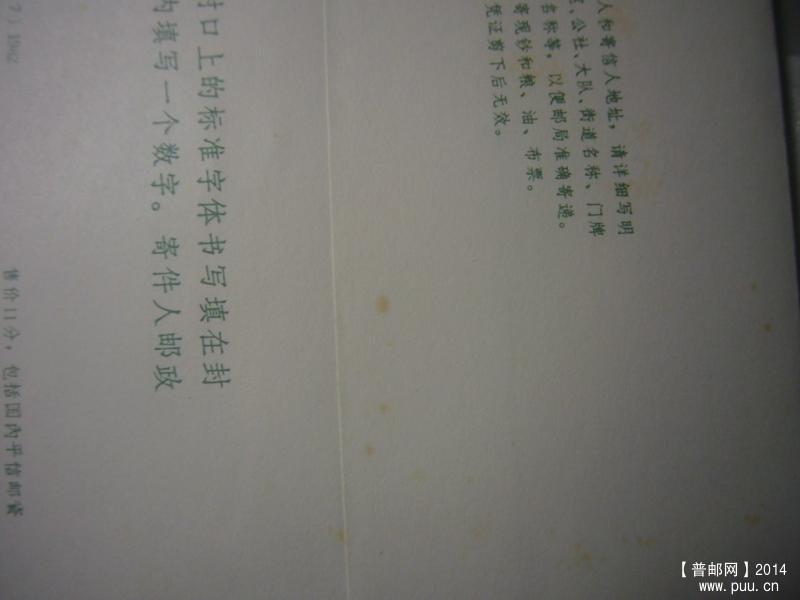 人和寄信人地址，请详细写明
、公社、大队、街道名称、门牌
名称等，以便邮局准确寄递。
寄现钞和粮、油、布票。
凭证剪下后无效。
封口上的标准字体书写填在封
内填写一个数字。寄件人邮政
7）1982
售价11分，包括国内平信邮资
【普邮网】2014
www.puu.cn